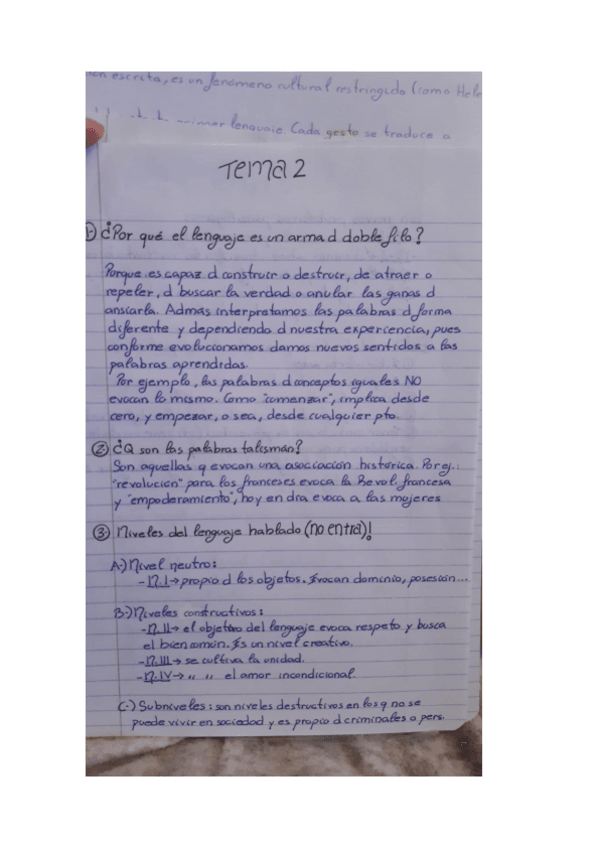 escrita, es un fenómeno cultural restringido (como Hele
primer lenguaje. Cada gesto se traduce a
Tema 2
1) ¿Por qué el lenguaje es un arma d doble filo?
Porque es capaz d construir o destruir, de atraer o
repeler, d buscar la verdad o anular las ganas d
ansiarla. Admás interpretamos las palabras d forma
diferente y dependiendo d nuestra experiencia, pues
conforme evolucionamos damos nuevos sentidos a las
palabras aprendidas.
Por ejemplo, las palabras d conceptos iguales NO
evocan lo mismo. Como "comenzar", implica desde
cero, y empezar, o sea, desde cualquier pto.
2) ¿Q son las palabras talismán?
Son aquellas q evocan una asociación histórica. Por ej.:
"revolución" para los franceses evoca la Revol. francesa
y "empoderamiento", hoy en día evoca a las mujeres
3) Niveles del lenguaje hablado (no entra)!
A-) Nivel neutro:
- N.I → propio d los objetos. Evocan dominio, posesión...
B-) Niveles constructivos:
- N.II → el objetivo del lenguaje evoca respeto y busca
el bien común. Es un nivel creativo.
- N.III → se cultiva la unidad.
- N.IV → " " el amor incondicional.
C-) Subniveles: son niveles destructivos en los q no se
puede vivir en sociedad y es propio d criminales o pers.